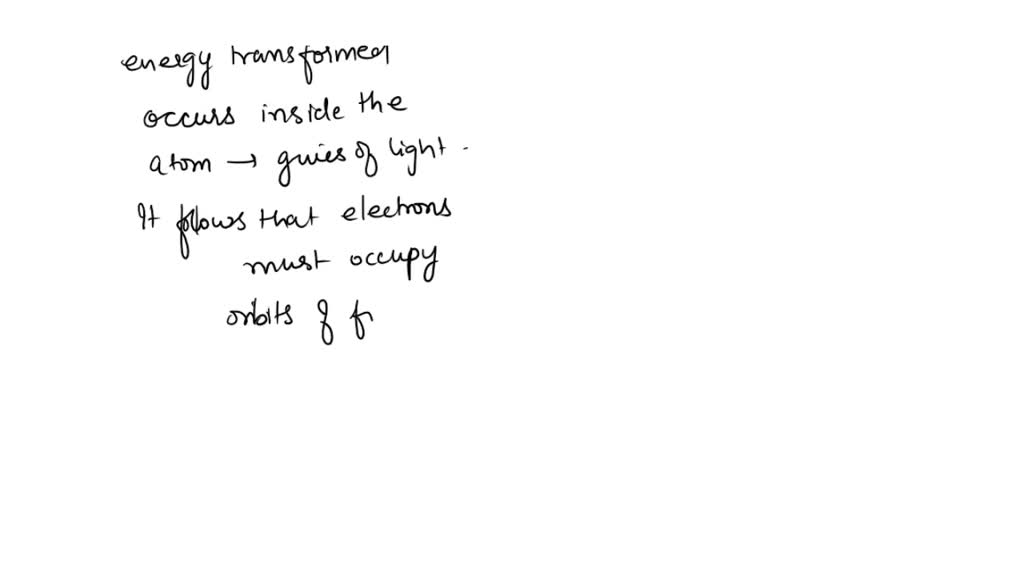 energy transformed
occurs inside the
atom → guies of light.
It follows that electrons
must occupy
orbits of f